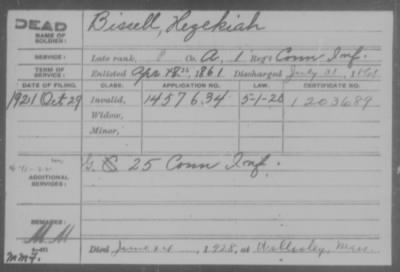 DEAD
NAME OF SOLDIER: Bissell, Hezekiah
SERVICE: Late rank, P Co. A, 1 Reg't Conn Inf.
TERM OF SERVICE: Enlisted Apr 18th, 1861. Discharged July 31, 1861
DATE OF FILING. CLASS. APPLICATION NO. LAW. CERTIFICATE NO.
1921 Oct 29 Invalid, 1457634 5-1-20 1203689
Widow,
Minor,
ADDITIONAL SERVICES: G. 25 Conn Inf.
REMARKS:
M.M
Died June 24, 1928, at Wellesley, Mass.